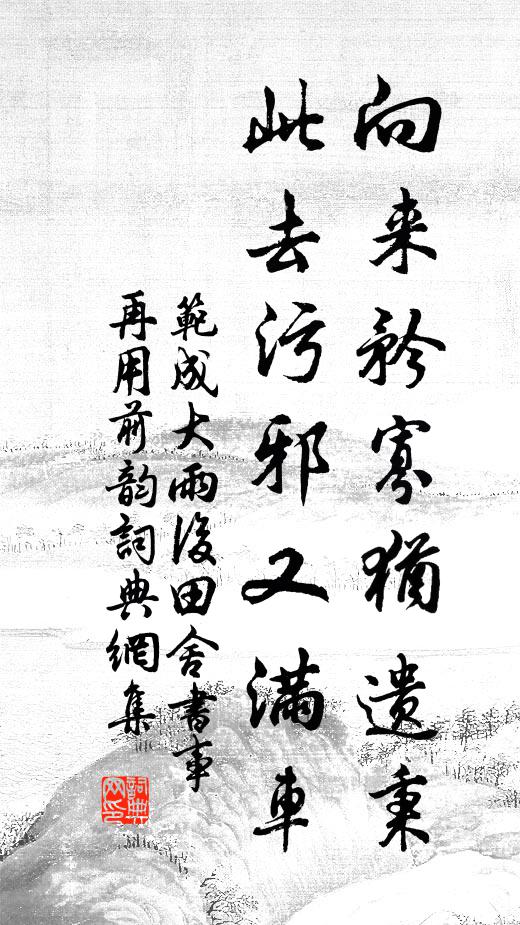 向来矜寡犹遗秉
此去污邪又满车
範成大雨後田舍書事
再用前韵詞典網集
詞典网印